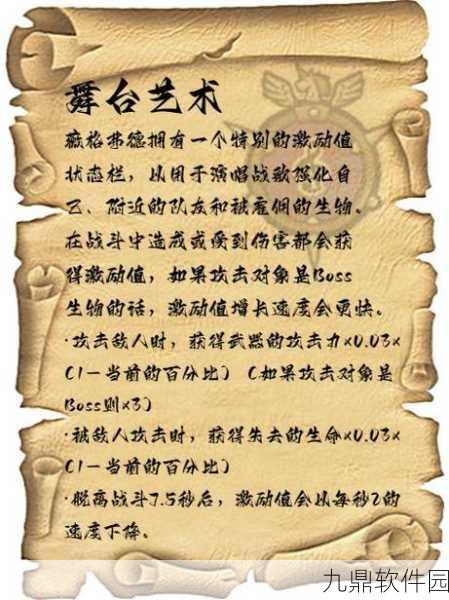 舞台艺术
薇格弗德拥有一个特别的激励值
状态栏，以用于演唱战歌强化自
己、附近的队友和被雇佣的生物。
在战斗中造成或受到伤害都会获
得激励值，如果攻击对象是Boss
生物的话，激励值增长速度会更快。
·攻击敌人时，获得武器的攻击力x0.03x
(1-当前的百分比) (如果攻击对象是
Boss则x3)
·被敌人攻击时，获得失去的生命x0.03x
(1-当前的百分比)
·脱离战斗7.5秒后，激励值会以每秒2的
速度下降。
九鼎软件园